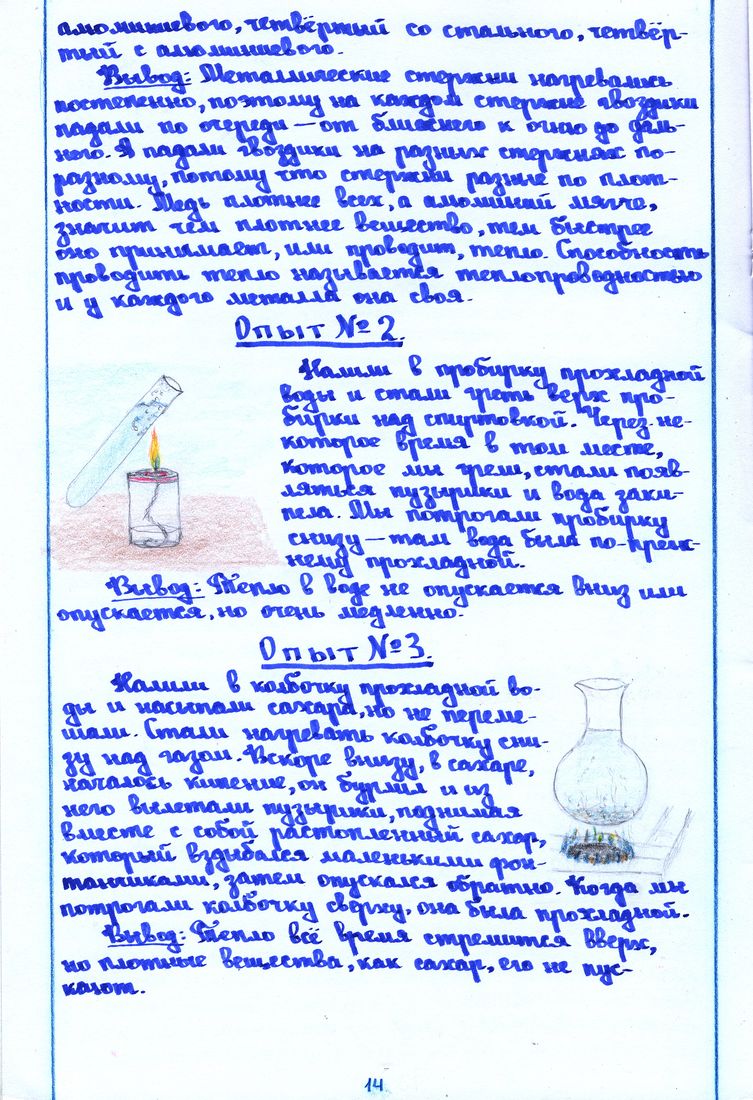 алюминиевого, четвёртый со стального, четвёр-
тый с алюминиевого.
Вывод: Металлические стержни нагревались
постепенно, поэтому на каждом стержне гвоздики
падали по очереди – от ближнего к огню до даль-
него. А падали гвоздики на разных стержнях по-
разному, потому что стержни разные по плот-
ности. Медь плотнее всех, а алюминий мягче,
значит чем плотнее вещество, тем быстрее
оно принимает, или проводит, тепло. Способность
проводить тепло называется теплопроводностью
и у каждого металла она своя.
Опыт №2.
Налили в пробирку прохладной
воды и стали греть верх про-
бирки над спиртовкой. Через не-
которое время в том месте,
которое мы грели, стали появ-
ляться пузырики и вода заки-
пела. Мы потрогали пробирку
снизу – там вода была по-преж-
нему прохладной.
Вывод: Тепло в воде не опускается вниз или
опускается, но очень медленно.
Опыт №3.
Налили в колбочку прохладной во-
ды и насыпали сахара, но не переме-
шали. Стали нагревать колбочку сни-
зу над газом. Вскоре внизу, в сахаре,
началось кипение, он бурлил и из
него вылетали пузырики, поднимая
вместе с собой растопленный сахар,
который вздыбался маленькими фон-
танчиками, затем опускался обратно. Когда мы
потрогали колбочку сверху, она была прохладной.
Вывод: Тепло всё время стремится вверх,
но плотные вещества, как сахар, его не пус-
кают.
14